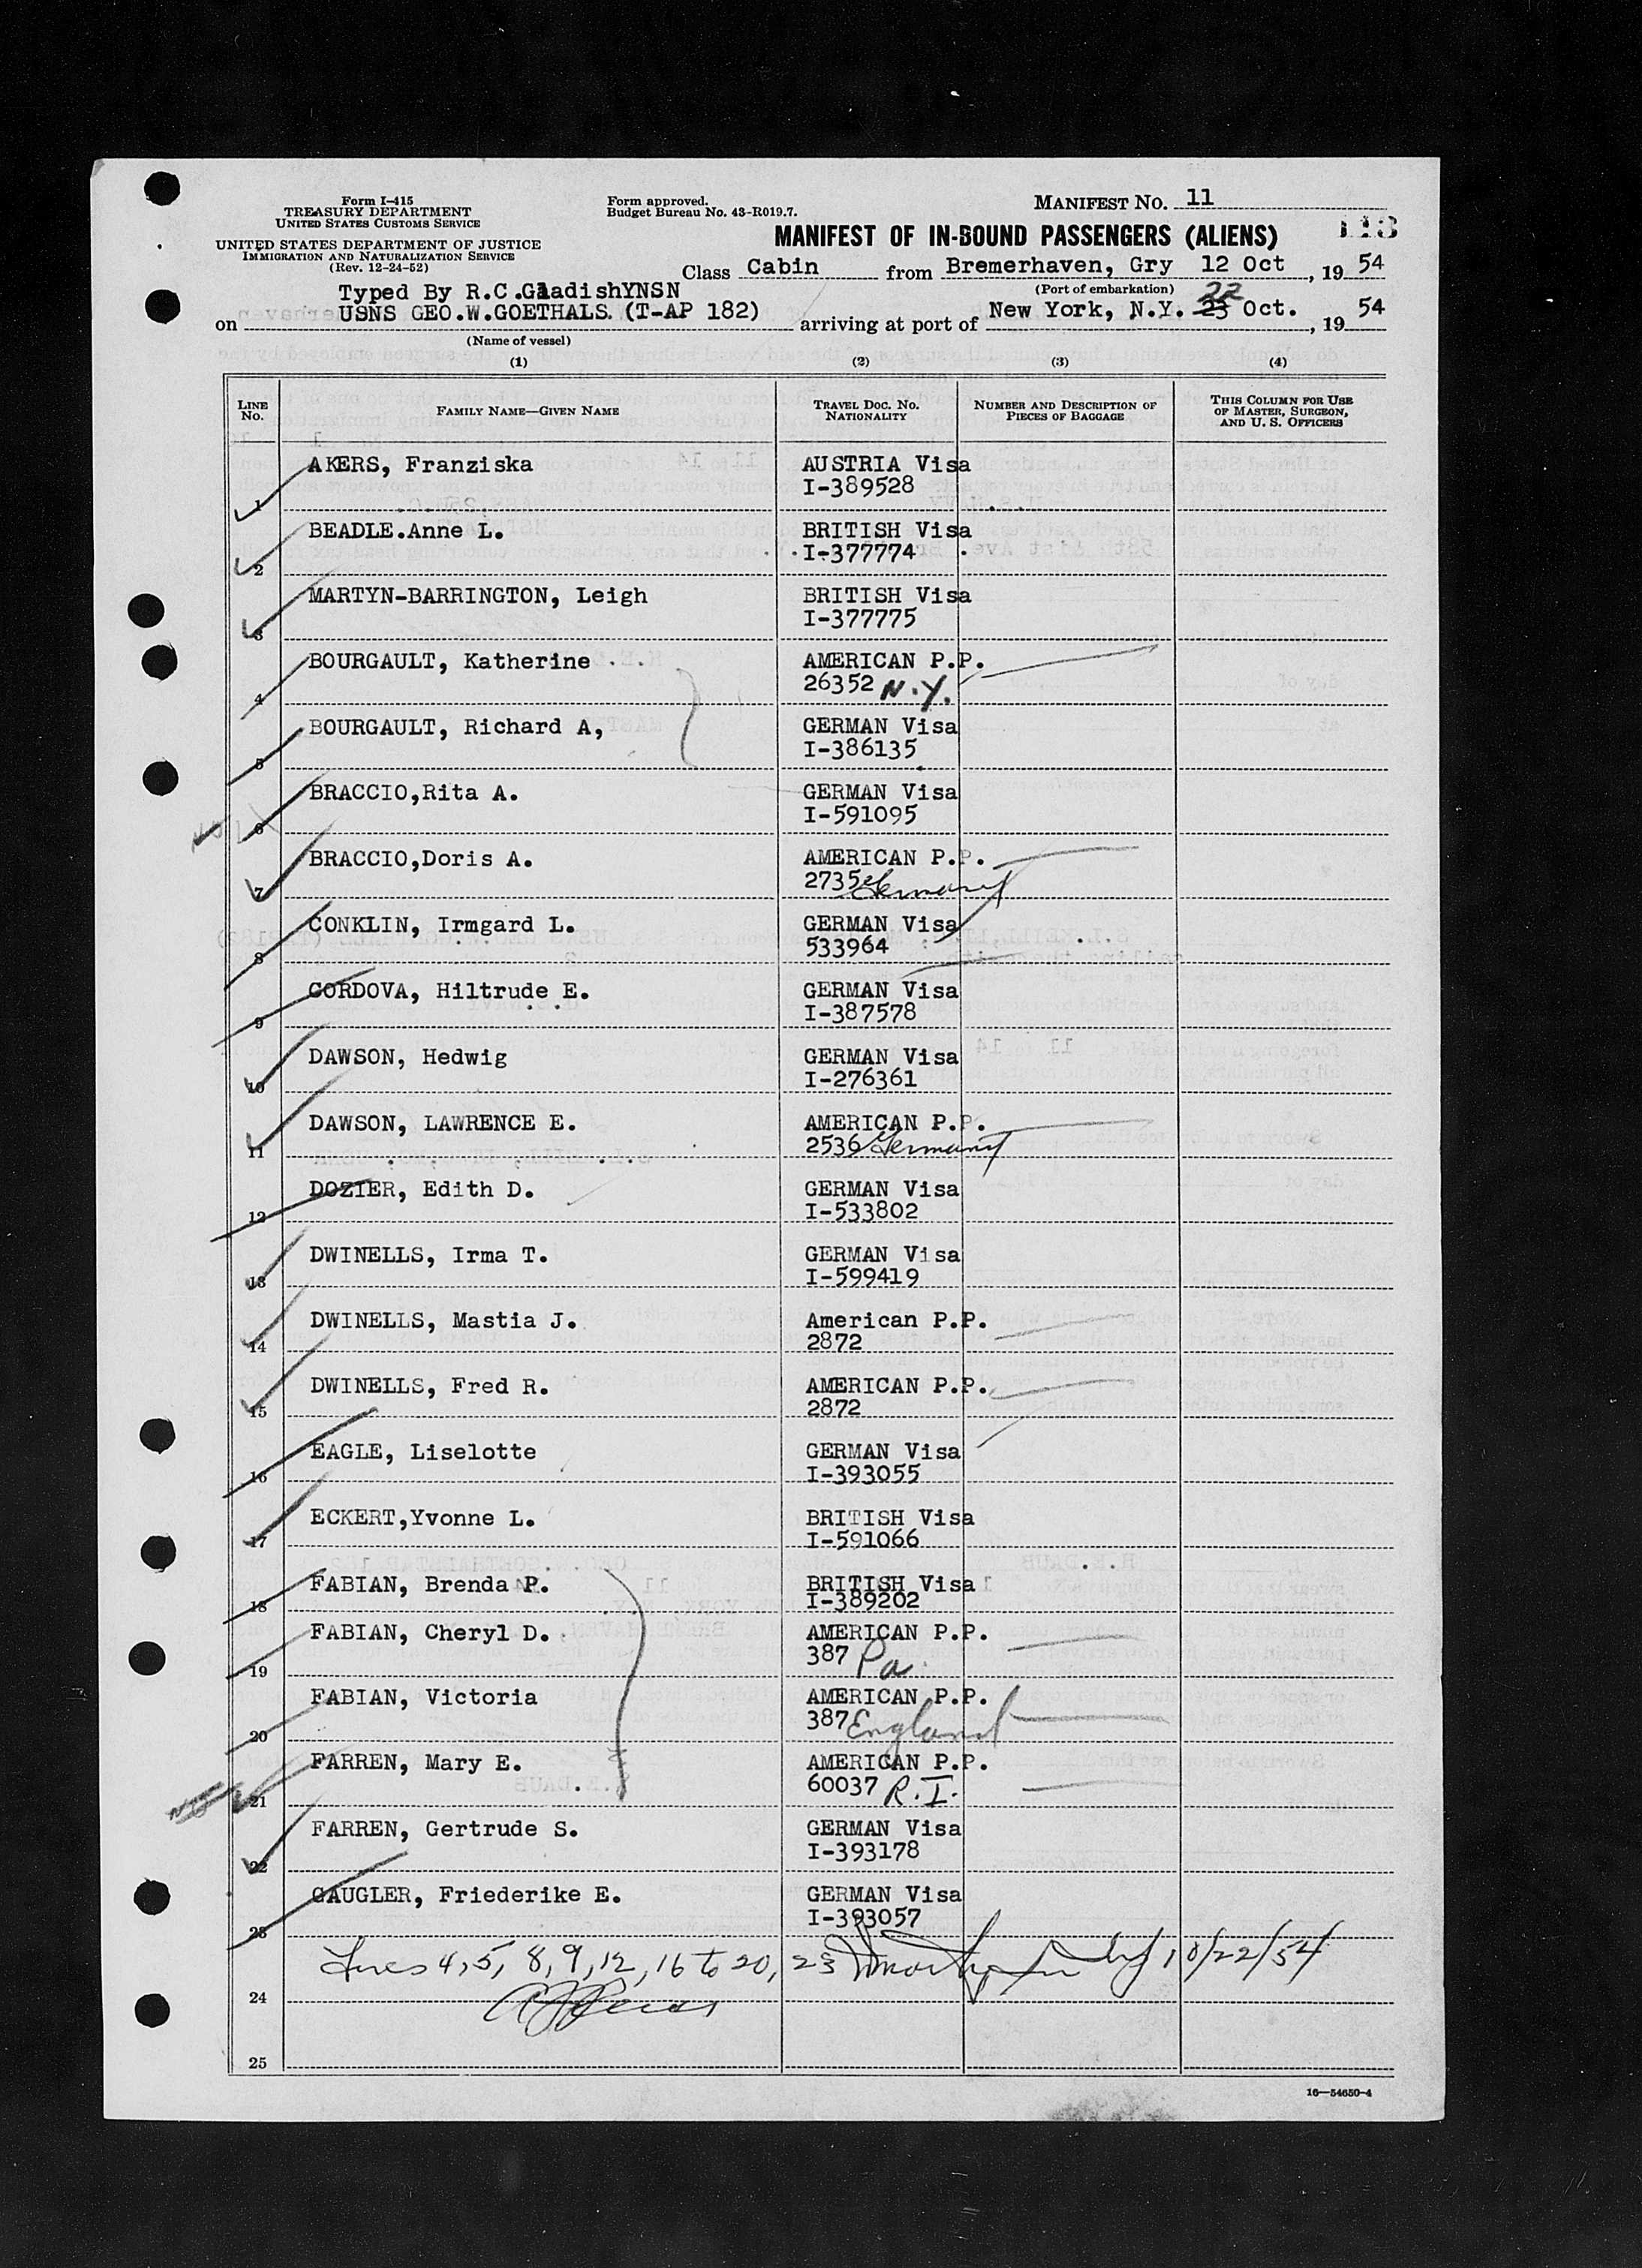 Form I-415
TREASURY DEPARTMENT
UNITED STATES CUSTOMS SERVICE
UNITED STATES DEPARTMENT OF JUSTICE
IMMIGRATION AND NATURALIZATION SERVICE
(Rev. 12-24-52)
Form approved.
Budget Bureau No. 43-R019.7.
MANIFEST NO. 11
113
MANIFEST OF IN-BOUND PASSENGERS (ALIENS)
Class Cabin from Bremerhaven, Gry 12 Oct, 19 54
(Port of embarkation)
Typed By R.C.GladishYNSN
on USNS GEO.W.GOETHALS. (T-AP 182) arriving at port of New York, N.Y. 23 22 Oct., 19 54
(Name of vessel)
(1) (2) (3) (4)
LINE NO. FAMILY NAME—GIVEN NAME TRAVEL DOC. NO. NATIONALITY NUMBER AND DESCRIPTION OF PIECES OF BAGGAGE THIS COLUMN FOR USE OF MASTER, SURGEON, AND U. S. OFFICERS
1 AKERS, Franziska AUSTRIA Visa
I-389528
2 BEADLE.Anne L. BRITISH Visa
I-377774
3 MARTYN-BARRINGTON, Leigh BRITISH Visa
I-377775
4 BOURGAULT, Katherine AMERICAN P.P.
26352 N.Y.
5 BOURGAULT, Richard A, GERMAN Visa
I-386135
6 BRACCIO,Rita A. GERMAN Visa
I-591095
7 BRACCIO,Doris A. AMERICAN P.P.
2735 Germany
8 CONKLIN, Irmgard L. GERMAN Visa
533964
9 CORDOVA, Hiltrude E. GERMAN Visa
I-387578
10 DAWSON, Hedwig GERMAN Visa
I-276361
11 DAWSON, LAWRENCE E. AMERICAN P.P.
2536 Germany
12 DOZIER, Edith D. GERMAN Visa
I-533802
13 DWINELLS, Irma T. GERMAN Visa
I-599419
14 DWINELLS, Mastia J. American P.P.
2872
15 DWINELLS, Fred R. AMERICAN P.P.
2872
16 EAGLE, Liselotte GERMAN Visa
I-393055
17 ECKERT,Yvonne L. BRITISH Visa
I-591066
18 FABIAN, Brenda P. BRITISH Visa
I-389202
19 FABIAN, Cheryl D. AMERICAN P.P.
387 Pa.
20 FABIAN, Victoria AMERICAN P.P.
387 England
21 FARREN, Mary E. AMERICAN P.P.
60037 R.I.
22 FARREN, Gertrude S. GERMAN Visa
I-393178
23 GAUGLER, Friederike E. GERMAN Visa
I-393057
Lines 4,5, 8,9,12,16 to 20, 23 10/22/54
24
25
16—54650-4